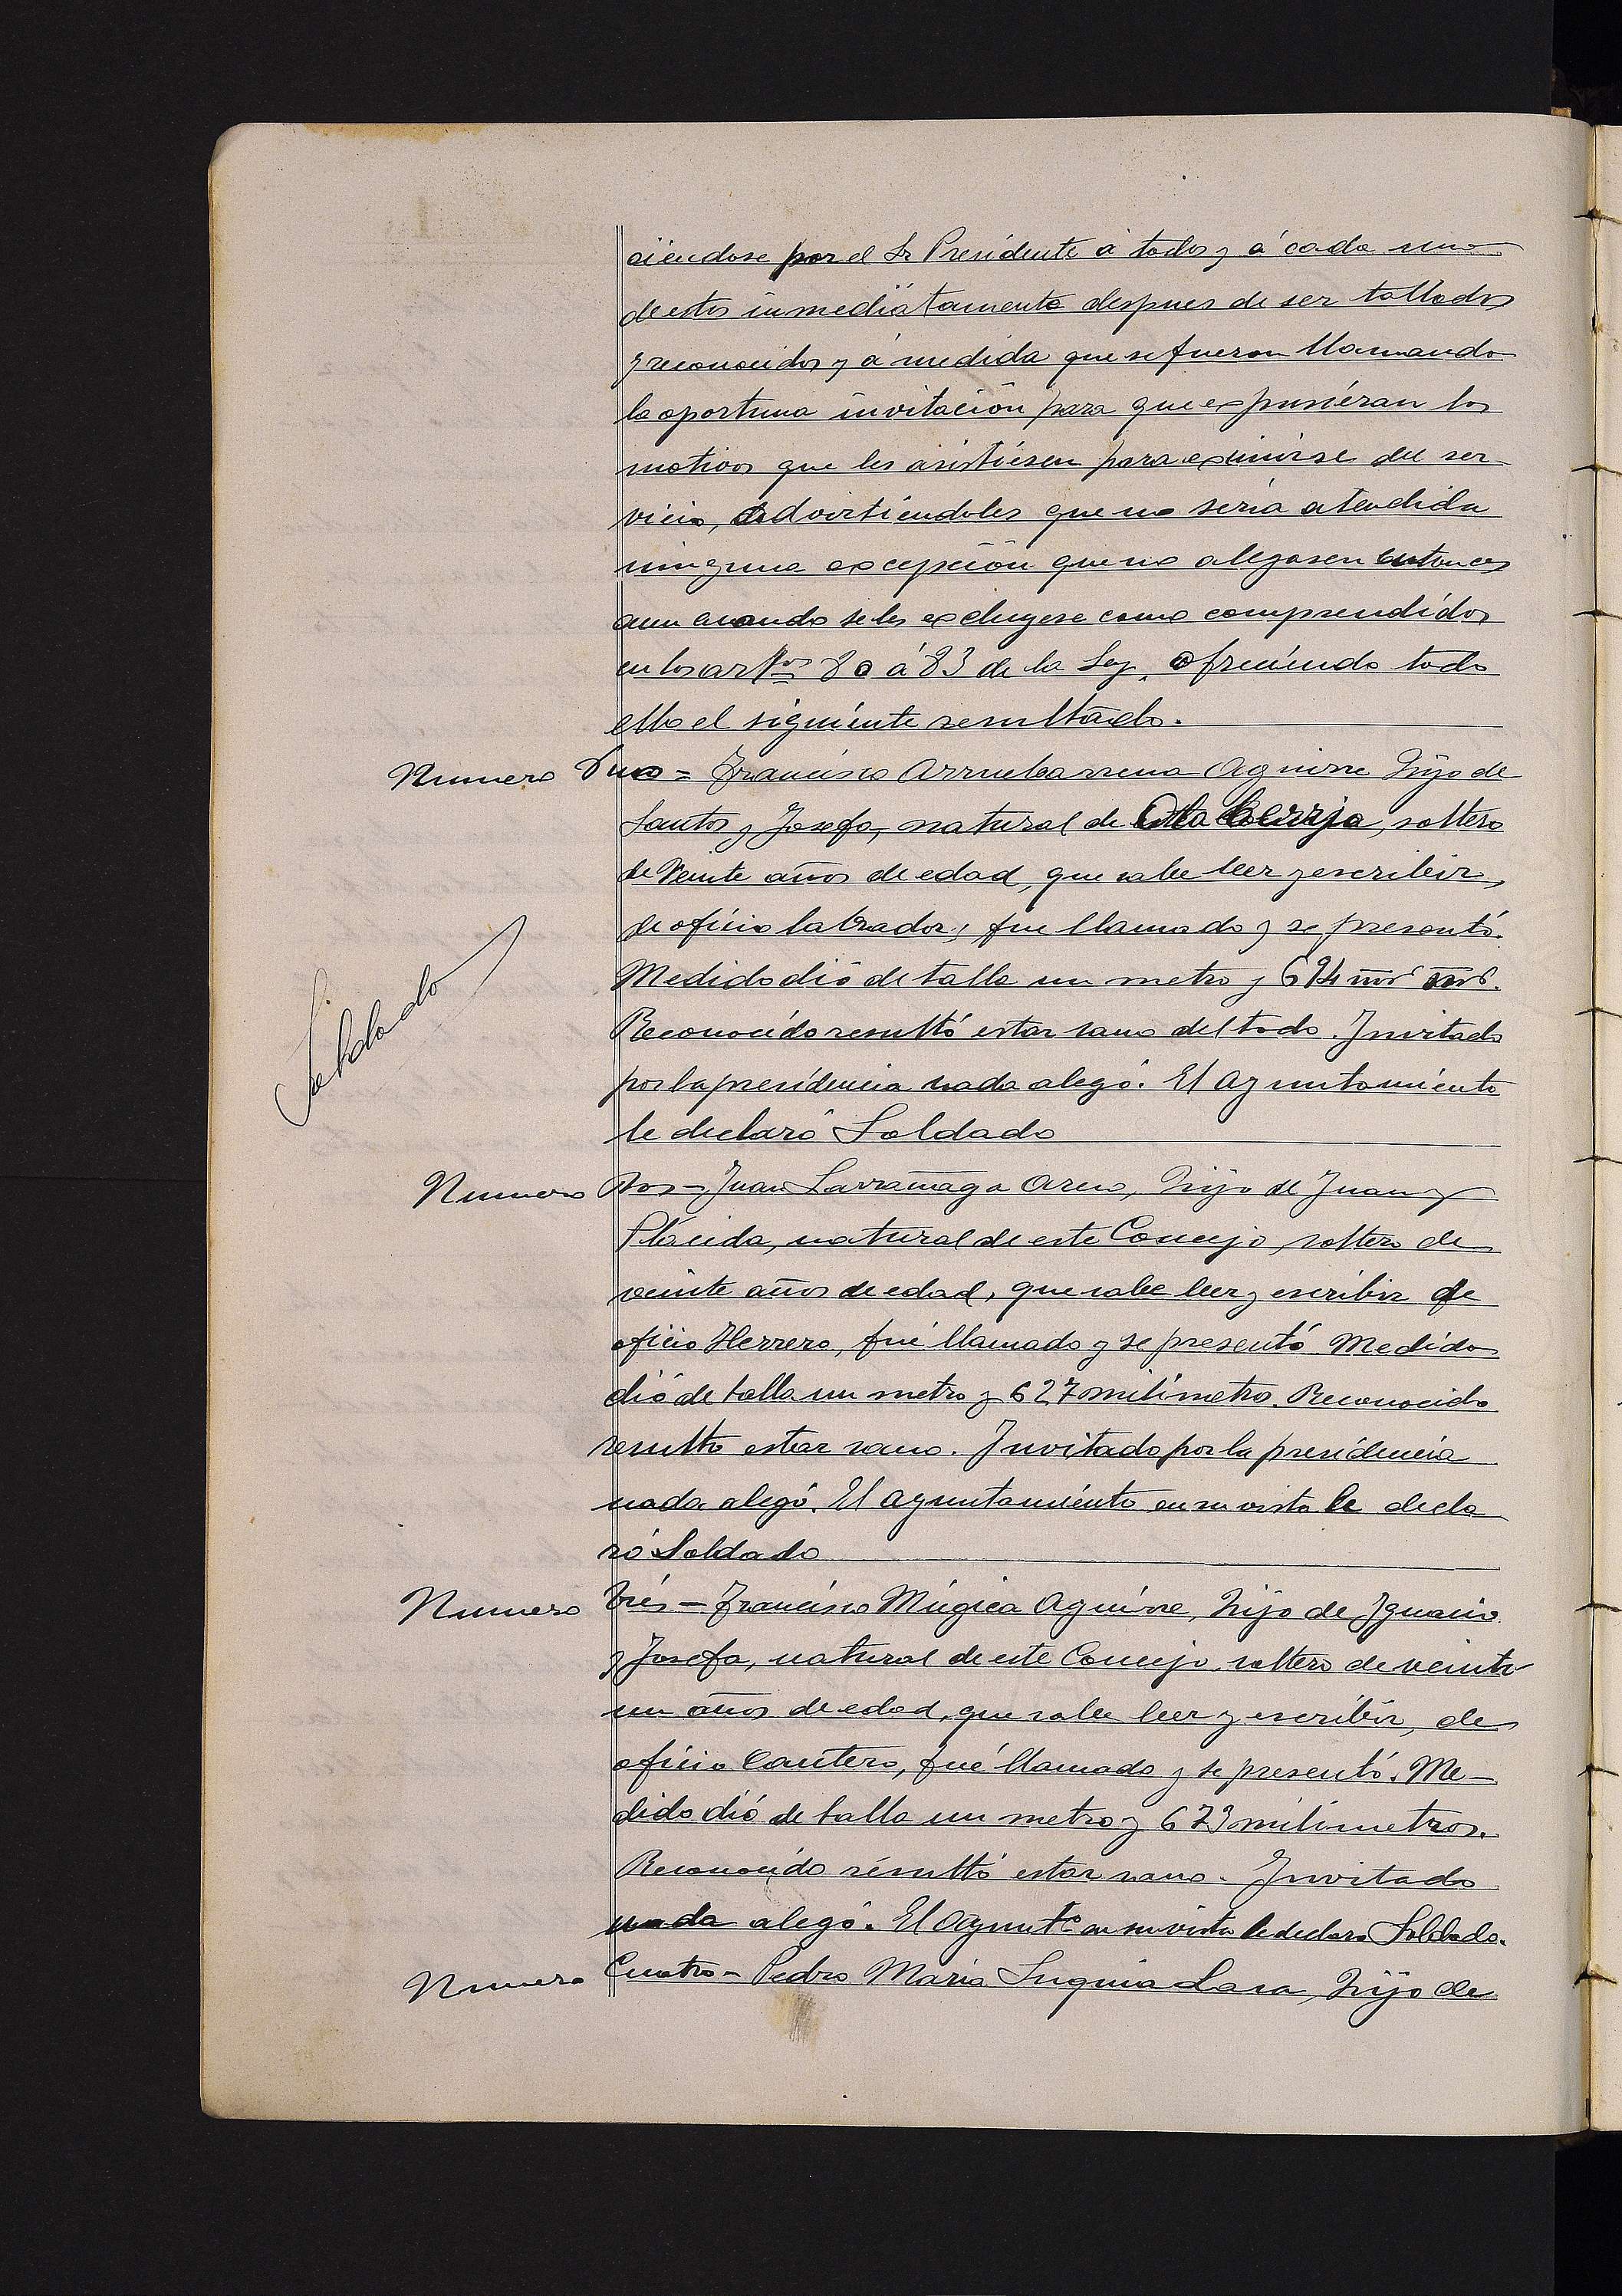 ciéndose por el Sr Presidente á todos y á cada uno
de estos inmediatamente despues de ser tallados
y reconocidos y á medida que se fueron llamando
la oportuna invitación para que expusiéran los
motivos que les asistiésen para eximirse del ser
vicio, advirtiéndoles que no sería atendida
ninguna excepción que no alegasen entonces
aun cuando se les excluyese como comprendidos
en los artos 80 á 83 de la Ley, ofreciendo todo
ello el siguiente resultado.
Numero Uno = Francisco Arruebarrena Aguirre Hijo de
Santos y Josefa, natural de Olaberria, soltero
de Veinte años de edad, que sabe leer y escribir,
de oficio labrador, fue llamado y se presentó.
Medido dió de talla un metro y 694
Reconocido resultó estar sano del todo. Invitado
por la presidencia nada alegó. El Ayuntamiento
le declaró Soldado
Soldado
Numero Dos = Juan Larrañaga Areno, Hijo de Juan y
Plácida, natural de este Concejo, soltero de
veinte años de edad, que sabe leer y escribir de
oficio Herrero, fué llamado y se presentó Medido
dió de talla un metro y 627 milímetro. Reconocido
resulto estar sano. Invitado por la presidencia
nada alegó. El ayuntamiénto en su vista le decla
ró Soldado
Numero Trés = Francisco Múgica Aguirre, Hijo de Ignacio
y Josefa, natural de este Concejo, soltero de veinte
un años de edad, que sabe leer y escribir, de
oficio Cantero, fué llamado y se presentó. Me-
dido dió de talla un metro y 673 milimetros.
Reconocido résultó estar sano. Invitado
nada alegó. El Ayuntº en su vista le declaro Soldado.
Numero Cuatro = Pedro Maria Suquia Lasa, Hijo de